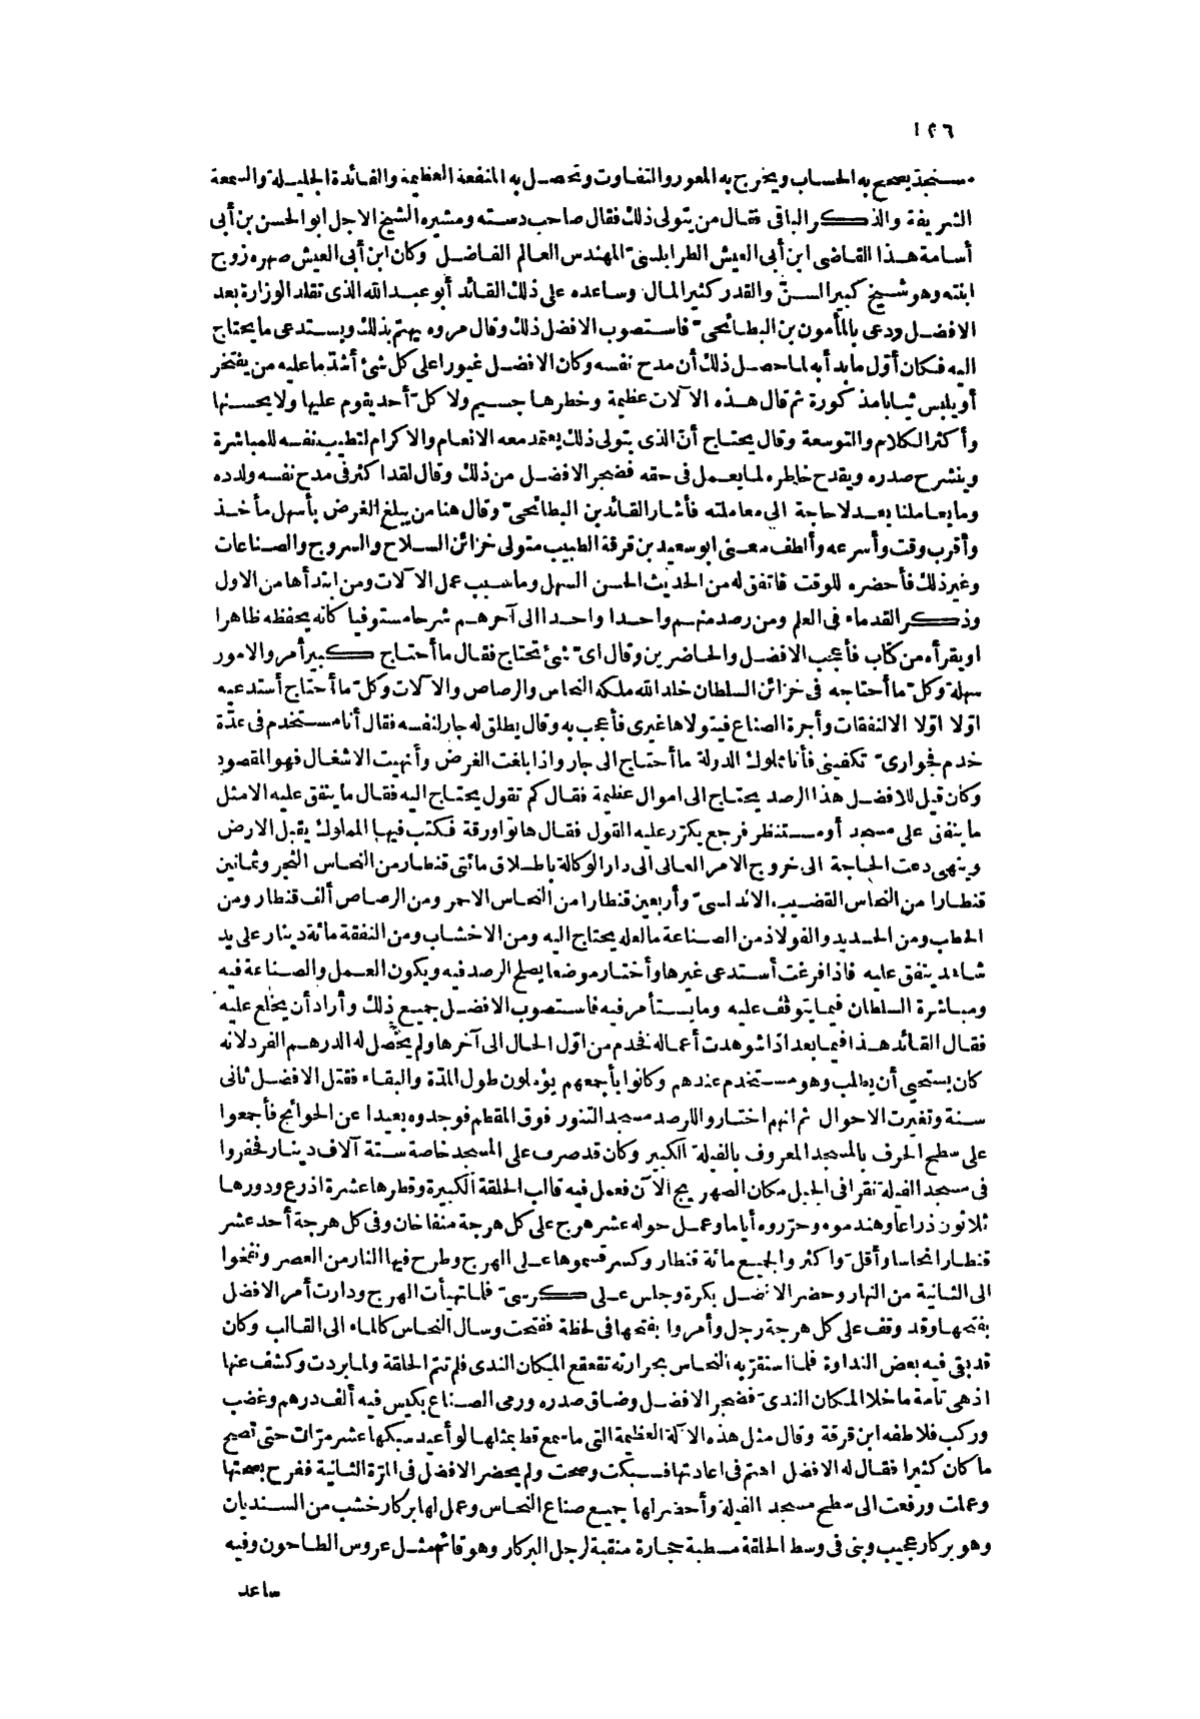 ١٢٦
مستجد يصحح به الحساب ويخرج به المعور والتفاوت وتحصل به المنفعة العظيمة والفائدة الجليلة والسمعة
الشريفة والذكر الباقى فقال من يتولى ذلك فقال صاحب دسته ومشيره الشيخ الاجل ابو الحسن بن أبى
أسامة هذا القاضى ابن أبى العيش الطرابلسىّ المهندس العالم الفاضل وكان ابن أبى العيش صهره زوج
ابنته وهو شيخ كبير السنّ والقدر كثير المال وساعده على ذلك القائد أبو عبد الله الذى تقلد الوزارة بعد
الافضل ودعى بالمأمون بن البطائحىّ فاستصوب الافضل ذلك وقال مروه يهتم بذلك ويستدعى ما يحتاج
اليه فكان أوّل ما بدأ به لما حصل ذلك أن مدح نفسه وكان الافضل غيورا على كل شئ أشدّ ما عليه من يفتخر
أو يلبس ثيابا مذكورة ثم قال هذه الآلات عظيمة وخطرها جسيم ولا كلّ أحد يقوم عليها ولا يحسنها
وأكثر الكلام والتوسعة وقال يحتاج أنّ الذى يتولى ذلك يعتمد معه الانعام والاكرام لتطيب نفسه للمباشرة
وينشرح صدره ويقدح خاطره لما يعمل فى حقه فضجر الافضل من ذلك وقال لقد اكثر فى مدح نفسه ولدده
وما يعاملنا بعد لا حاجة الى معاملته فأشار القائد بن البطائحىّ وقال هنا من يبلغ الغرض بأسهل مأخذ
وأقرب وقت وأسرعه وألطف معنى ابو سعيد بن قرقة الطبيب متولى خزائن السلاح والسروج والصناعات
وغير ذلك فأحضره للوقت فاتفق له من الحديث الحسن السهل وما سبب عمل الآلات ومن ابتدأها من الاول
وذكر القدماء فى العلم ومن رصد منهم واحدا واحدا الى آخرهم شرحا مستوفيا كأنه يحفظه ظاهرا
او يقرأه من كتاب فأعجب الافضل والحاضرين وقال اىّ شئ تحتاج فقال ما أحتاج كبير أمر والامور
سهلة وكلّ ما أحتاجه فى خزائن السلطان خلد الله ملكه النحاس والرصاص والآلات وكلّ ما أحتاج أستدعيه
اوّلا اوّلا الا النفقات وأجرة الصناع فيتولاها غيرى فأعجب به وقال يطلق له جار لنفسه فقال أنا مستخدم فى عدّة
خدم فجوارىّ تكفينى فأنا مملوك الدولة ما أحتاج الى جار واذا بلغت الغرض وأنهيت الاشغال فهو المقصود
وكان قيل للافضل هذا الرصد يحتاج الى اموال عظيمة فقال كم تقول يحتاج اليه فقال ما ينفق عليه الامثل
ما ينفق على مسجد أو مستنظر فرجع يكرّر عليه القول فقال هاتوا ورقة فكتب فيها المملوك يقبل الارض
وينهى دعت الحاجة الى خروج الامر العالى الى دار الوكالة باطلاق مائتى قنطار من النحاس الثجر وثمانين
قنطارا من النحاس القضيب الاندلسىّ وأربعين قنطارا من النحاس الاحمر ومن الرصاص ألف قنطار ومن
الحطب ومن الحديد والفولاذ من الصناعة ما لعله يحتاج اليه ومن الاخشاب ومن النفقة مائة دينار على يد
شاهد ينفق عليه فاذا فرغت أستدعى غيرها وأختار موضعا يصلح الرصد فيه ويكون العمل والصناعة فيه
ومباشرة السلطان فيما يتوقف عليه وما يستأمر فيه فاستصوب الافضل جميع ذلك وأراد أن يخلع عليه
فقال القائد هذا فيما بعد اذا شوهدت أعماله فخدم من اوّل الحال الى آخرها ولم يحصّل له الدرهم الفرد لانه
كان يستحيى أن يطلب وهو مستخدم عندهم وكانوا بأجمعهم يؤملون طول المدّة والبقاء فقتل الافضل ثانى
سنة وتغيرت الاحوال ثم انهم اختاروا للرصد مسجد التنور فوق المقطم فوجدوه بعيدا عن الحوائج فأجمعوا
على سطح الجرف بالمسجد المعروف بالفيلة الكبير وكان قد صرف على المسجد خاصة ستة آلاف دينار فحفروا
فى مسجد الفيلة نقرا فى الجبل مكان الصهريج الآن فعمل فيه قالب الحلقة الكبيرة وقطرها عشرة اذرع ودورها
ثلاثون ذراعا وهندموه وحرّروه أياما وعمل حوله عشر هرج على كل هرجة منفاخان وفى كل هرجة أحد عشر
قنطارا نحاسا وأقلّ واكثر والجميع مائة قنطار وكسر قسموها على الهرج وطرح فيها النار من العصر ونفخوا
الى الثانية من النهار وحضر الافضل بكرة وجلس على كرسىّ فلما تهيأت الهرج ودارت أمر الافضل
بفتحها وقد وقف على كل هرجة رجل وأمروا بفتحها فى لحظة ففتحت وسال النحاس كالماء الى القالب وكان
قد بقى فيه بعض النداوة فلما استقرّ به النحاس بحرارته تقعقع المكان الندى فلم تتم الحلقة ولما بردت وكشف عنها
اذ هى تامة ما خلا المكان الندىّ فضجر الافضل وضاق صدره ورمى الصناع بكيس فيه ألف درهم وغضب
وركب فلاطفه ابن قرقة وقال مثل هذه الآلة العظيمة التى ما سمع قط بمثلها لو أعيد سبكها عشر مرّات حتى تصح
ما كان كثيرا فقال له الافضل اهتم فى اعادتها فسبكت وصحت ولم يحضر الافضل فى المرّة الثانية ففرح بصحتها
وعملت ورفعت الى سطح مسجد الفيلة وأحضر لها جميع صناع النحاس وعمل لها بركار خشب من السنديان
وهو بركار عجيب وبنى فى وسط الحلقة مسطبة حجارة منقبة لرجل البركار وهو قائم مثل عروس الطاحون وفيه
ساعد